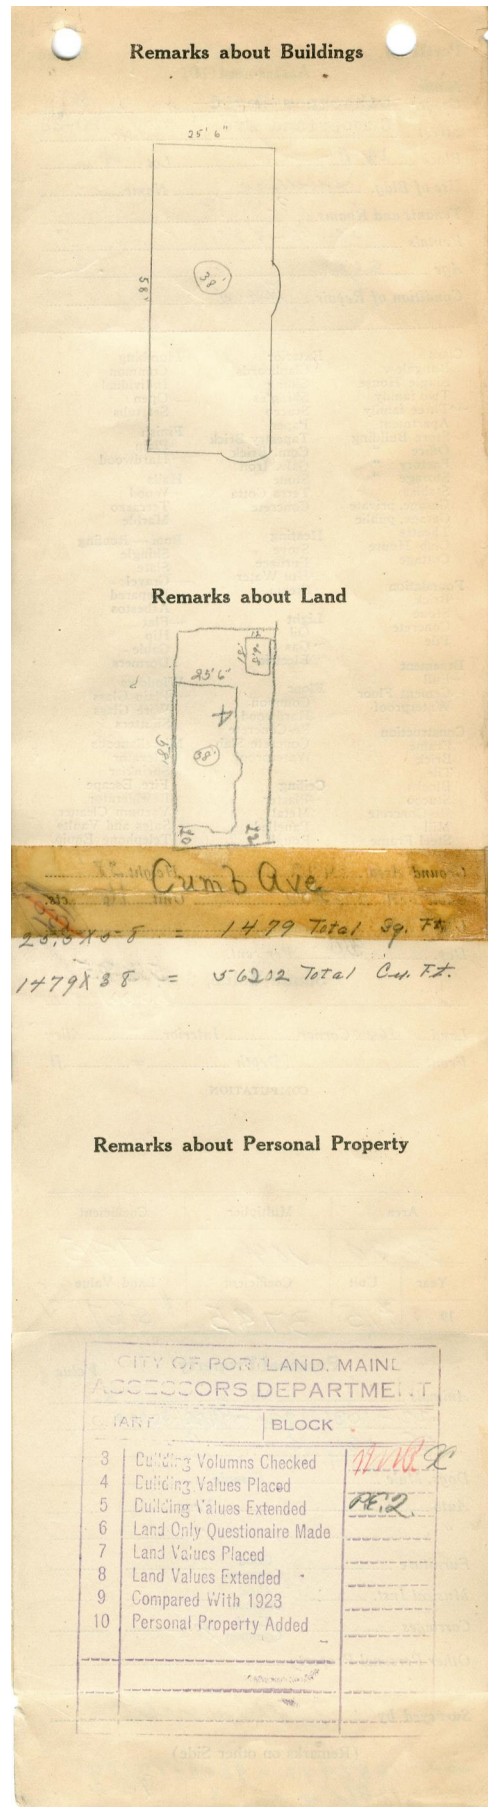 Remarks about Buildings
25' 6"
58'
38'
Remarks about Land
25'6"
58'
38'
Cumb Ave
25.5 X 58 = 1479 Total Sq. Ft.
1479 X 38 = 56202 Total Cu. Ft.
Remarks about Personal Property
CITY OF PORTLAND, MAINE
ASSESSORS DEPARTMENT
CHART BLOCK
3 Building Volumns Checked
4 Building Values Placed
5 Building Values Extended PE.2.
6 Land Only Questionaire Made
7 Land Values Placed
8 Land Values Extended
9 Compared With 1923
10 Personal Property Added